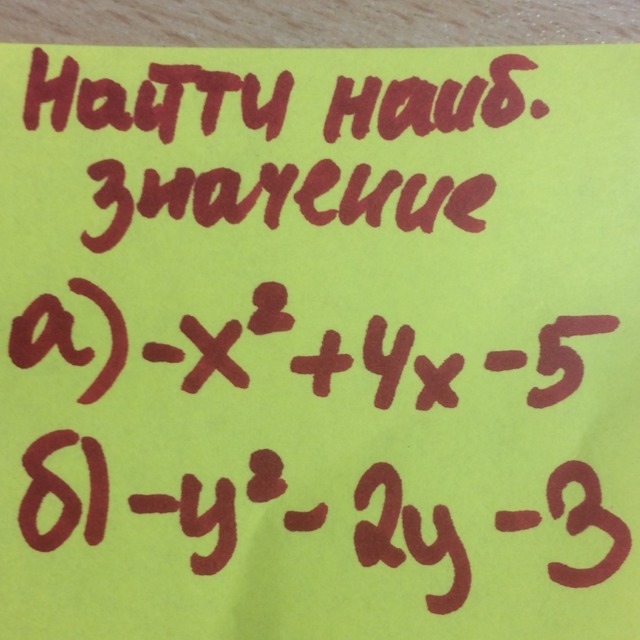 Найти наиб.
значение
а) -x² + 4x - 5
б) -y² - 2y - 3